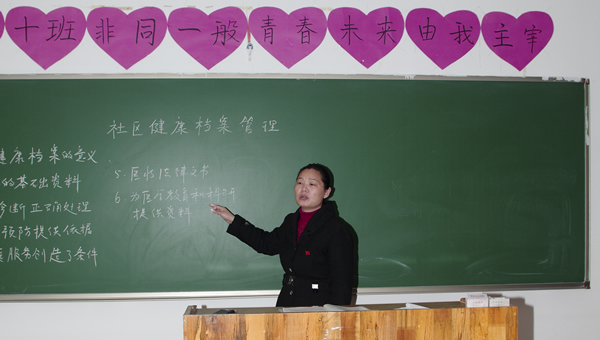 十班非同一般青春未来由我主宰
社区健康档案管理
健康档案的意义
的基础资料
诊断正确处理
预防提供依据
服务创造了条件
5.医师法律文书
6.为医学教育和科研
提供资料